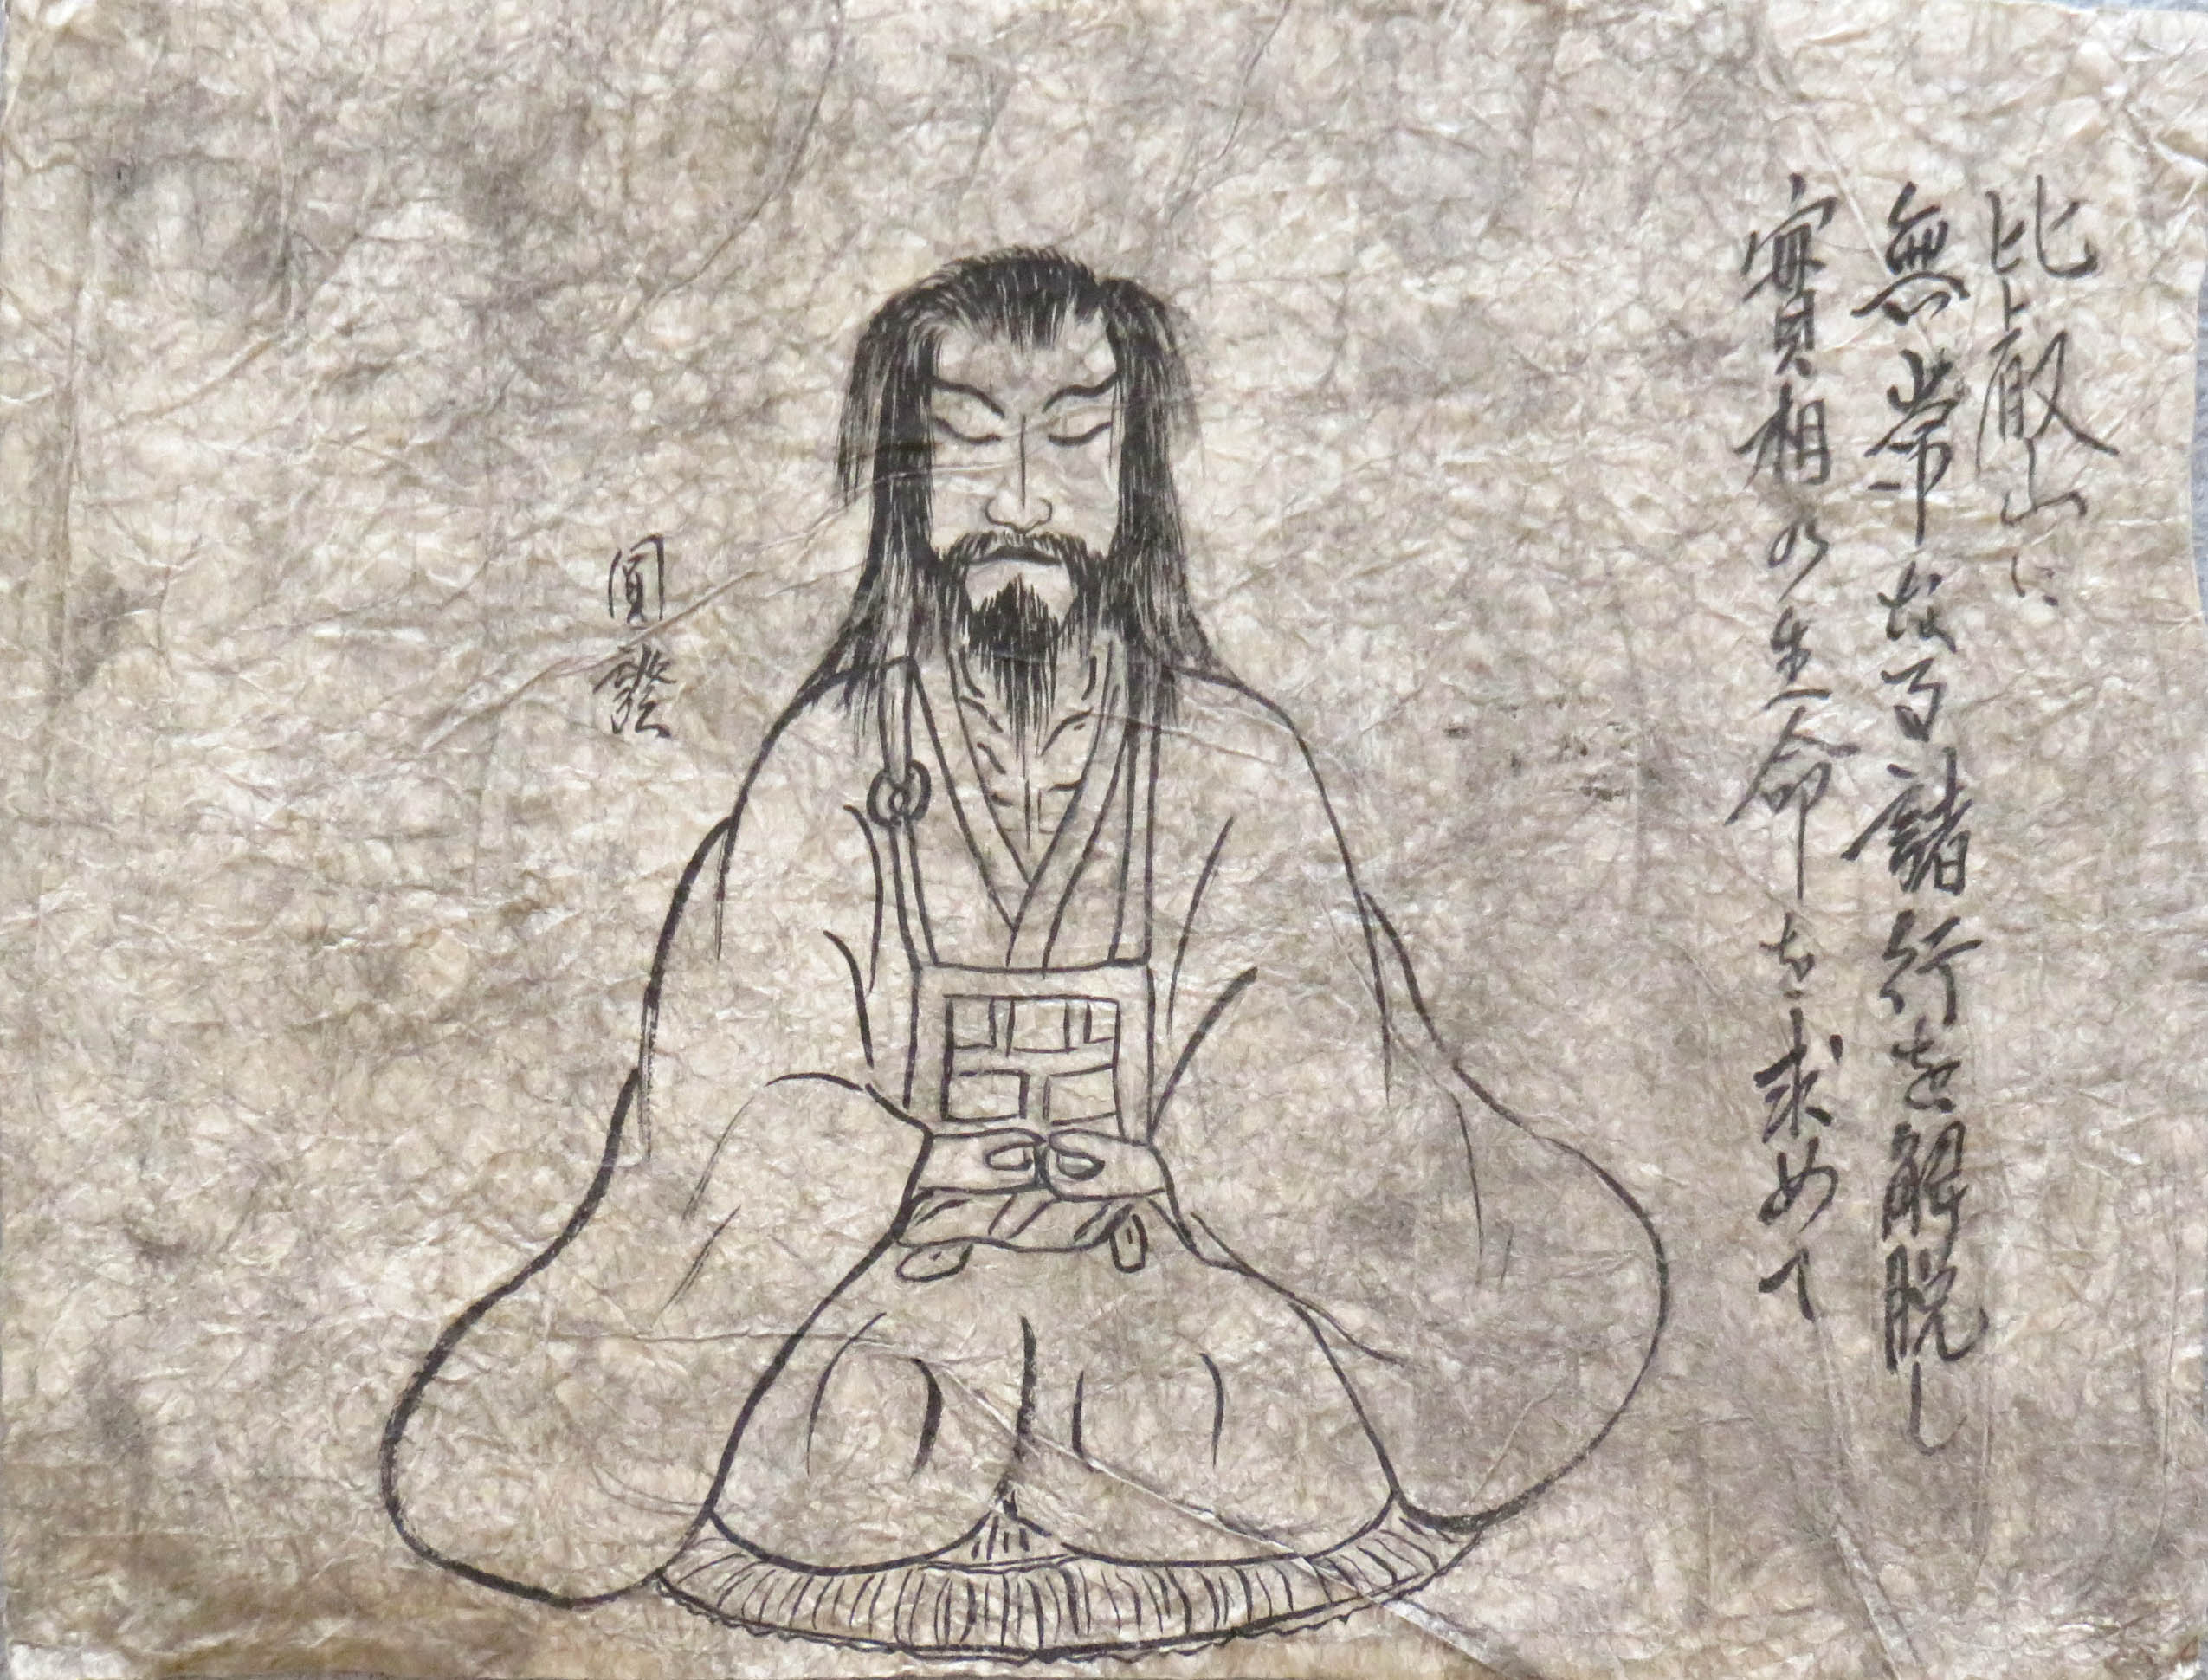 比叡山に
無常なる諸行を解脱し
實相の生命を求めて
圓發